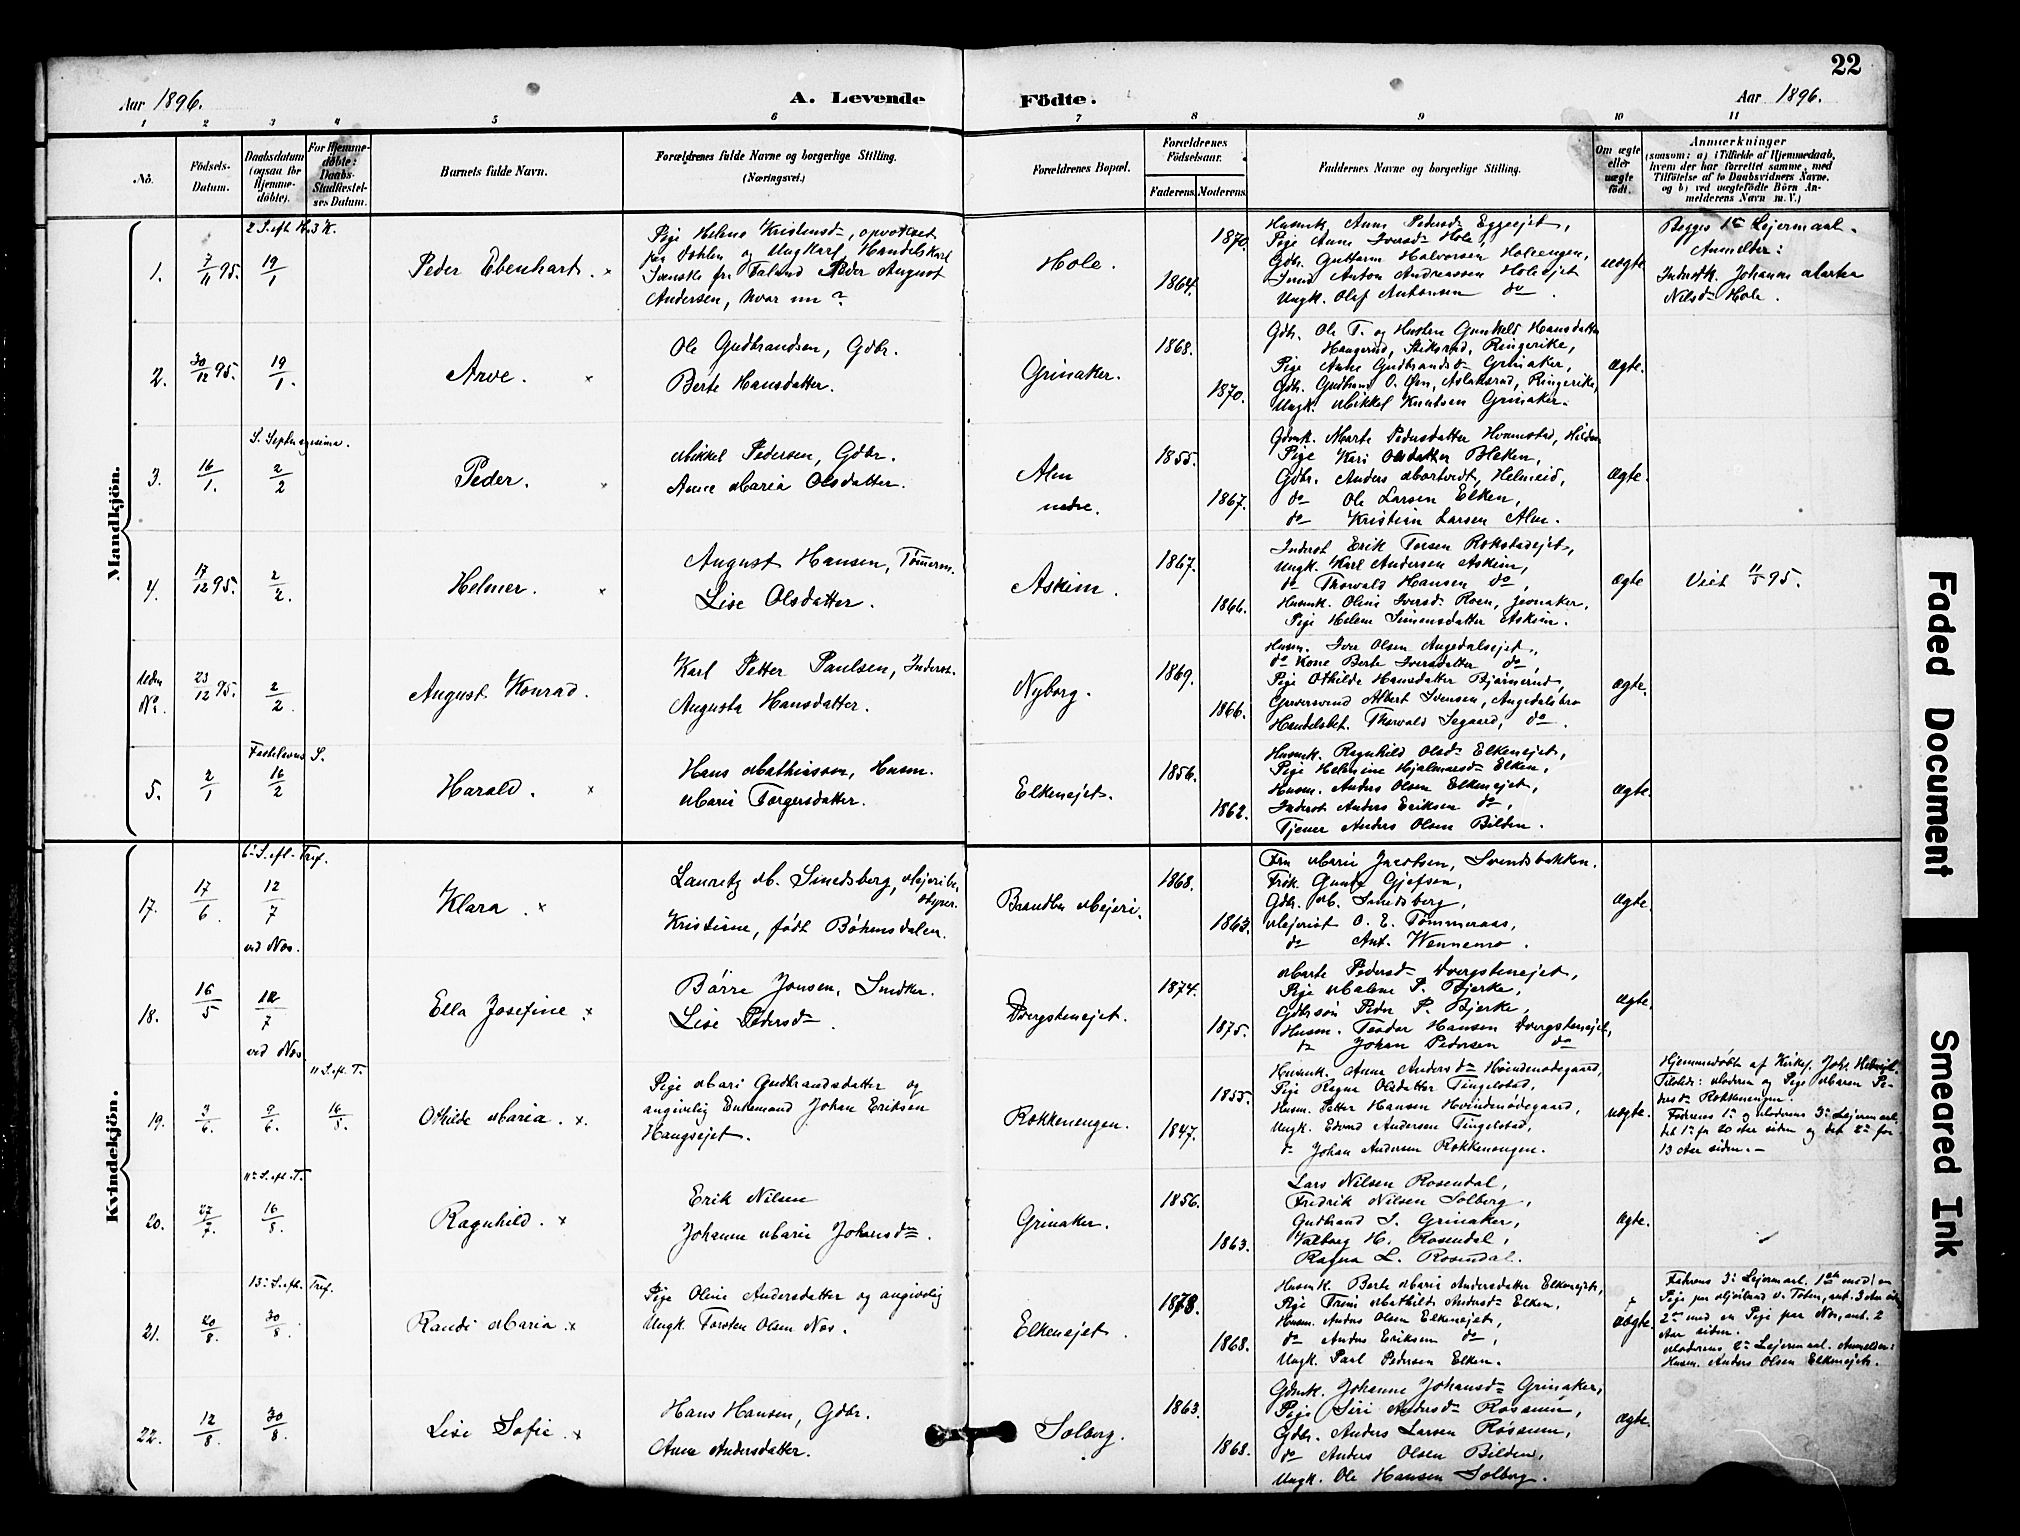 22
Aar 1896.
A. Levende
Födte.
Aar 1896.
1 2 3 4 5 6 7 8 9 10 11
No.
Födsels-
Datum.
Daabsdatum
(ogsaa for
Hjemme-
døbte).
For Hjemme-
døbte:
Daabs-
Stadfæstel-
ses Datum.
Barnets fulde Navn.
Forældrenes fulde Navne og borgerlige Stilling.
(Næringsvei.)
Forældrenes Bopæl.
Forældrenes
Födselsaar.
Faderens. Moderens.
Faddernes Navne og borgerlige Stilling.
Om ægte
eller
uægte
født.
Anmærkninger
(saasom: a) i Tilfælde af Hjemmedaab,
hvem der har forrettet samme, med
Tilföielse af to Daabsvidners Navne,
og b) ved uægtefödte Börn An-
melderens Navn m. V.)
Mandkjön.
2 S. eft. H. 3 K.
1.
7/11 95.
19/1
Peder Ebenhart. x
Pige Helene Kristensd., opvokset
paa Dahlen og Ungkarl Handelskarl
Svenske fra Peder August
Andersen, hvor nu?
Hole.
1864. 1870.
Husmk. Anne Pedersd. Eggeejet,
Pige Anne Iversd. Hole,
Gdbr. Guttorm Halvorsen Holeengen,
Anton Andreassen Holeejet
Ungk. Olaf Antonsen do.
uægte
Begges 1ste Lejermaal.
Anmelder:
Inderstk. Johanne Marthea
Nilsd. Hole.
2.
30/12 95.
19/1.
Arve. x
Ole Gudbrandsen, Gdbr.
Berte Hansdatter.
Grinaker.
1868. 1870.
Gdbr. Ole T. og Hustru Gunhild Hansdatter
Haugerud, Ringerike,
Pige Anne Gudbrandsd. Grinaker,
Gdbr. Gudbrand O. Øen, Aslaksrud, Ringerike,
Ungk. Mikkel Knutsen Grinaker.
Ægte.
S. Septuagesima.
3.
16/1.
2/2
Peder. x
Mikkel Pedersen, Gdbr.
Anne Maria Olsdatter.
Alm
nedre.
1855. 1867.
Gdmk. Marte Pedersdatter Hvamstad,
Pige Kari Olsdatter Bleken,
Gdbr. Anders Mortvedt, Helmeid,
do Ole Larsen Elken,
do Kristian Larsen Alm.
Ægte.
4.
17/12 95.
2/2.
Helmer. x
August Hansen, Tømerm.
Lise Olsdatter.
Askim.
1867. 1866.
Inderst Erik Torsen Rokstadejet,
Ungk. Karl Andersen Askim,
do Thorvald Hansen do,
Husmk. Oline Iversd. Roen, Jevnaker,
Pige Helene Simensdatter Askim.
Ægte
Viet 11/5 95.
Uden
No.
23/12 95.
2/2.
August Konrad.
Karl Petter Paulsen, Inderst.
Augusta Hansdatter.
Nyborg.
1869. 1866.
Husm. Iver Olsen Augedalsejet,
do Kone Berte Iversdatter do,
Pige Othilde Hansdatter Bjørnerud,
Garversvend Albert Svensen, Augedalsbro
Handelsbet. Thorvald Segaard, do.
Ægte.
Fastelavns S.
5.
2/1
16/2
Harald. x
Hans Mathiassen, Husm.
Marie Torgersdatter.
Elkenejet.
1856. 1862.
Husmk. Ragnhild Olsd. Elkenejet,
Pige Helmine Hjalmarsd. Elken,
Husm. Anders Olsen Elkenejet,
Inderst Anders Eriksen do,
Tjener Anders Olsen Bilden.
Ægte.
Kvindekjön.
6te S. eft. Tref.
17.
17/6
12/7
ved Nes.
Klara. x
Lauritz M. Smedsberg, Mejeribe-
styrer.
Kristiane, født Bøhmsdalen.
Brandbu Mejeri.
1868. 1863.
Fru Marie Jacobsen, Svendsbakken.
Frøk. Gunda Gjefsen,
Gdbr. M. Smedsberg,
Mejerist O. E. Tømmeraas,
do Ant. Wennemo.
Ægte.
18.
16/5
12/7
ved Nes
Ella Josefine. x
Børre Jonsen, Snedker.
Lise Pedersd.
Dvergstenejet.
1874. 1875.
Marte Pedersd. Dvergstenejet,
Pige Malene P. Bjerke,
Gdbrsøn Peder P. Bjerke,
Husm. Teodor Hansen Dvergstenejet,
do Johan Pedersen do
Ægte.
11 S. eft. T.
19.
3/6.
9/6.
16/8.
Othilde Maria. x
Pige Mari Gudbrandsdatter og
angivelig Enkemand Johan Eriksen
Haugsejet.
Røkkenengen.
1855. 1847.
Husmk. Anne Andersd. Hvindenødegaard,
Pige Ragna Olsdatter Tingelstad,
Husm. Petter Hansen Hvindenødegaard,
Ungk. Edvard Andersen Tingelstad,
do Johan Andersen Røkkenengen.
uægte.
Hjemmedøbt af Kirkes. Joh.
Tilstede: Moderen og Pige Maren Pe-
dersd. Røkkenengen.
Faderens 1ste og Moderens 3die Lejermaal,
det 1ste for 20 Aar siden og det 2det for
13 Aar siden. —
11te S. eft. T.
20.
27/7.
16/8.
Ragnhild. x
Erik Nilsen
Johanne Marie Johansd.
Grinaker.
1856. 1863.
Lars Nilsen Rosendal,
Fredrik Nilsen Solberg,
Gudbrand I. Grinaker,
Valborg H. Rosendal,
Ragna L. Rosendal.
Ægte.
13de S. eft. Tref.
21.
20/8.
30/8.
Randi Maria. x
Pige Oline Andersdatter og angivelig
Ungk. Torsten Olsen Nes.
Elkenejet.
1873. 1868.
Husmk. Berte Marie Andersdatter Elkenejet,
Pige Trine Mathilde Andersd. Elken,
Husm. Anders Olsen Elkenejet,
do Anders Eriksen do,
Ungk. Paul Pedersen Elken.
uægte.
Faderens 3die Lejermaal. 1ste med en
Pige paa v. Toten, ant. 3 Aar siden
2det med en Pige paa Nes, ant. 2
Aar siden.
Moderens 2det Lejermaal. Anmelder:
Husm. Anders Olsen Elkenejet.
22.
12/8.
30/8.
Lise Sofie. x
Hans Hansen, Gdbr.
Anne Andersdatter.
Solberg.
1863. 1868.
Gdmk. Johanne Johansd. Grinaker,
Pige Siri Andersd. Røssum,
Gdbr. Anders Larsen Røssum,
do Anders Olsen Bilden,
Ungk. Ole Hansen Solberg.
Ægte.
Faded Document
Smeared Ink